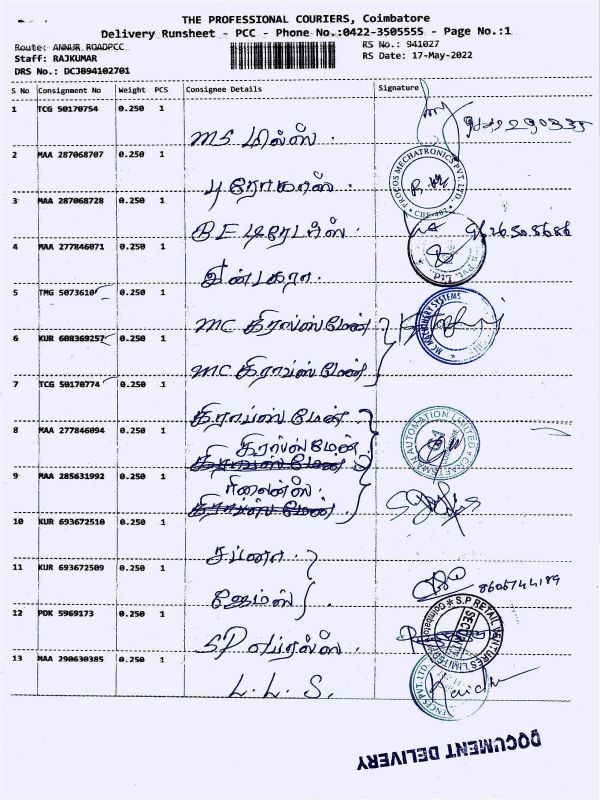 THE PROFESSIONAL COURIERS, Coimbatore
Delivery Runsheet - PCC - Phone No.:0422-3505555 - Page No.:1
Route: ANNUR ROADPCC
RS No.: 941027
Staff: RAJKUMAR
RS Date: 17-May-2022
DRS No.: DCJB94102701
S No Consignment No Weight PCS Consignee Details Signature
1 TCG 50170754 0.250 1
MS மில்ஸ்.
2 MAA 287068707 0.250 1
PROFOS MECHATRONICS PVT. LTD
3 MAA 287068728 0.250 1
4 MAA 277846071 0.250 1
5 TMG 5073610 0.250 1
MC கிராப்ஸ்மேன்
MC MACHINERY SYSTEMS
6 KUR 608369257 0.250 1
MC கிராப்ஸ்மேன்
7 TCG 50170774 0.250 1
கிராப்ஸ் மேன்
CRAFTSMAN AUTOMATION LIMITED
8 MAA 277846094 0.250 1
கிராப்ஸ்மேன்
9 MAA 285631992 0.250 1
ரிலைன்ஸ்.
10 KUR 693672510 0.250 1
சப்னா
11 KUR 693672509 0.250 1
ஜேம்ஸ்
8605744189
12 PDK 5969173 0.250 1
S.P RETAIL VENTURES LIMITED
Coimbatore
SECURITY
13 MAA 290630385 0.250 1
L. L. S.
DOCUMENT DELIVERY